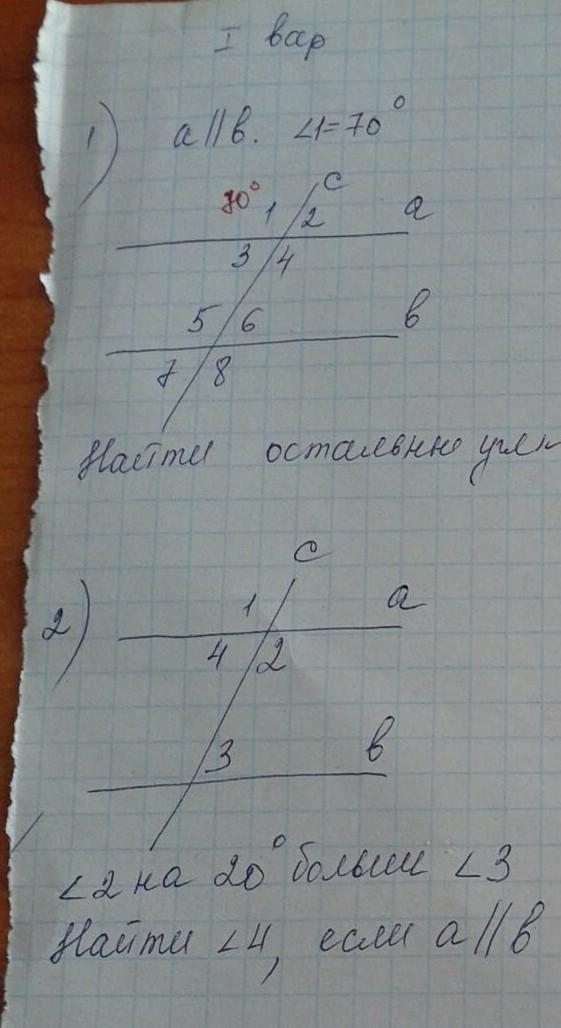 I вар
1) a || в. ∠1=70°
70° 1 2 c a
3 4
5 6 в
7 8
Найти остальные углы
c
2) 1 a
4 2
3 в
∠2 на 20° больше ∠3
Найти ∠4, если a || в